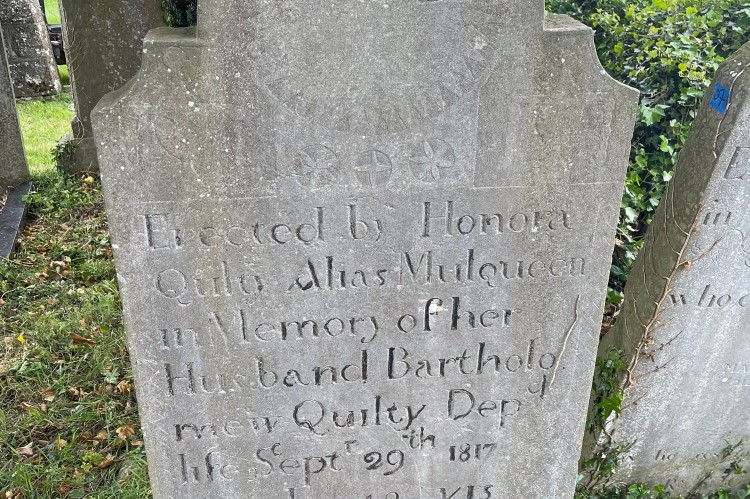 Erected by Honora
Quily Alias Mulqueen
in Memory of her
Husband Bartholo
mew Quilty Depd
life Septr 29th 1817
YIS
E
in
who
he